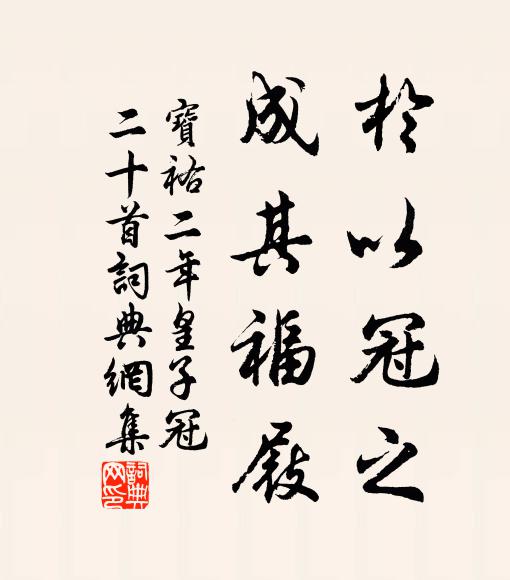 於以冠之
成其福履
寶祐二年皇子冠
二十首詞典網集
詞典
网印